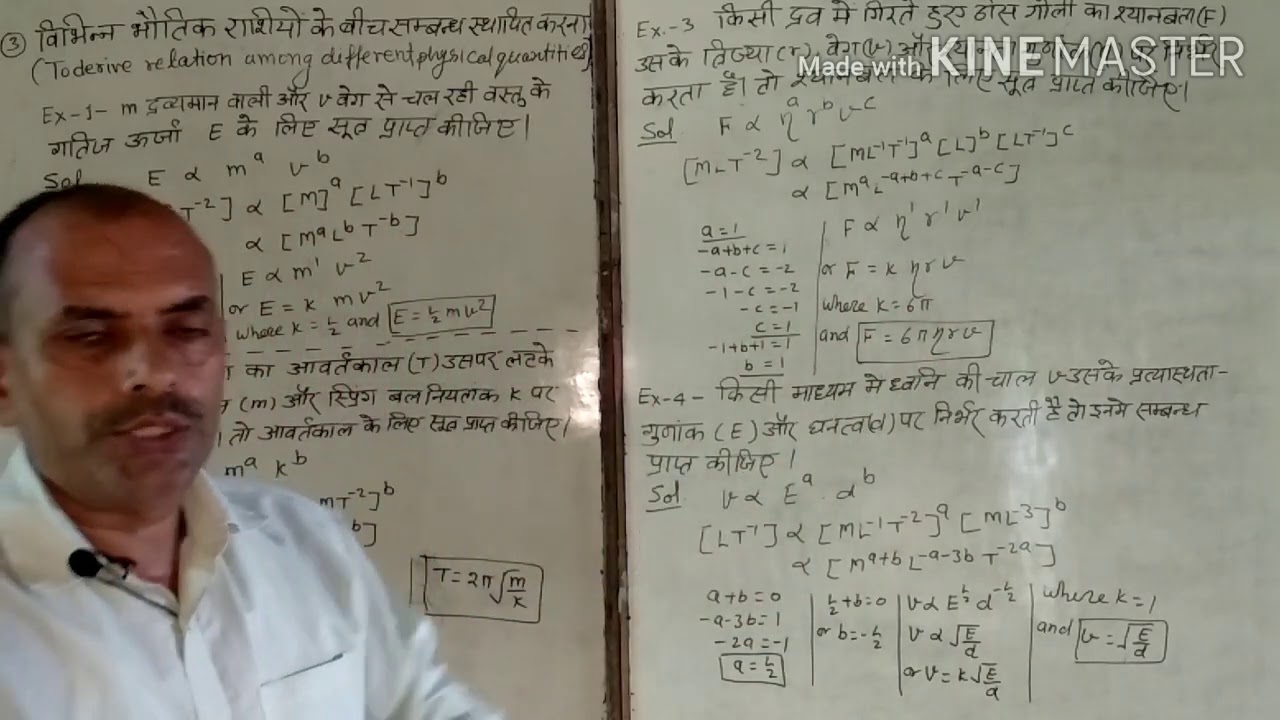 ③ विभिन्न भौतिक राशियों के बीच सम्बन्ध स्थापित करना
(To derive relation among different physical quantities)
Ex-1- m द्रव्यमान वाली और v वेग से चल रही वस्तु के
गतिज ऊर्जा E के लिए सूत्र प्राप्त कीजिए।
Sol E ∝ m^a v^b
T^-2] ∝ [M]^a [LT^-1]^b
∝ [M^a L^b T^-b]
E ∝ m^1 v^2
or E = K mv^2
where K = 1/2 and E = 1/2 mv^2
का आवर्तकाल (T) उसपर लटके
(m) और स्प्रिंग बल नियतांक K पर
तो आवर्तकाल के लिए सूत्र प्राप्त कीजिए।
m^a K^b
MT^-2]^b
b]
T = 2π√(m/K)
Ex.-3 किसी द्रव में गिरते हुए ठोस गोली का श्यानबल (F)
उसके त्रिज्या (r), वेग (v) और
करता है। तो श्यानबल के लिए सूत्र प्राप्त कीजिए।
Made with KINEMASTER
Sol F ∝ η^a r^b v^c
[MLT^-2] ∝ [ML^-1T^-1]^a [L]^b [LT^-1]^c
∝ [M^a L^-a+b+c T^-a-c]
a = 1
-a+b+c = 1
-a-c = -2
-1-c = -2
-c = -1
c = 1
-1+b+1 = 1
b = 1
F ∝ η^1 r^1 v^1
or F = K η r v
where K = 6π
and F = 6πηrv
Ex-4- किसी माध्यम में ध्वनि की चाल v उसके प्रत्यास्थता-
गुणांक (E) और घनत्व (d) पर निर्भर करती है तो इनमे सम्बन्ध
प्राप्त कीजिए।
Sol v ∝ E^a . d^b
[LT^-1] ∝ [ML^-1T^-2]^a [ML^-3]^b
∝ [M^a+b L^-a-3b T^-2a]
a+b = 0
-a-3b = 1
-2a = -1
a = 1/2
1/2+b = 0
or b = -1/2
v ∝ E^1/2 d^-1/2
v ∝ √(E/d)
or v = K√(E/d)
where K = 1
and v = √(E/d)